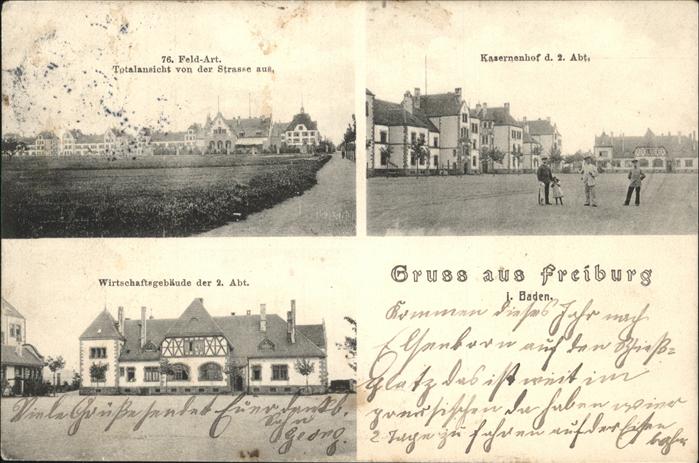 76. Feld-Art.
Totalansicht von der Strasse aus.
Kasernenhof d. 2. Abt.
Wirtschaftsgebäude der 2. Abt.
Gruss aus Freiburg
i. Baden.
Kommen dieses Jahr nach
Elsenborn auf den Schieß-
platz das ist weit im
preusischen da haben wier
2 Tage zu fahren auf der Eisen
bahn
Viele Grüße sendet Euer dankb.
Sohn
Georg.